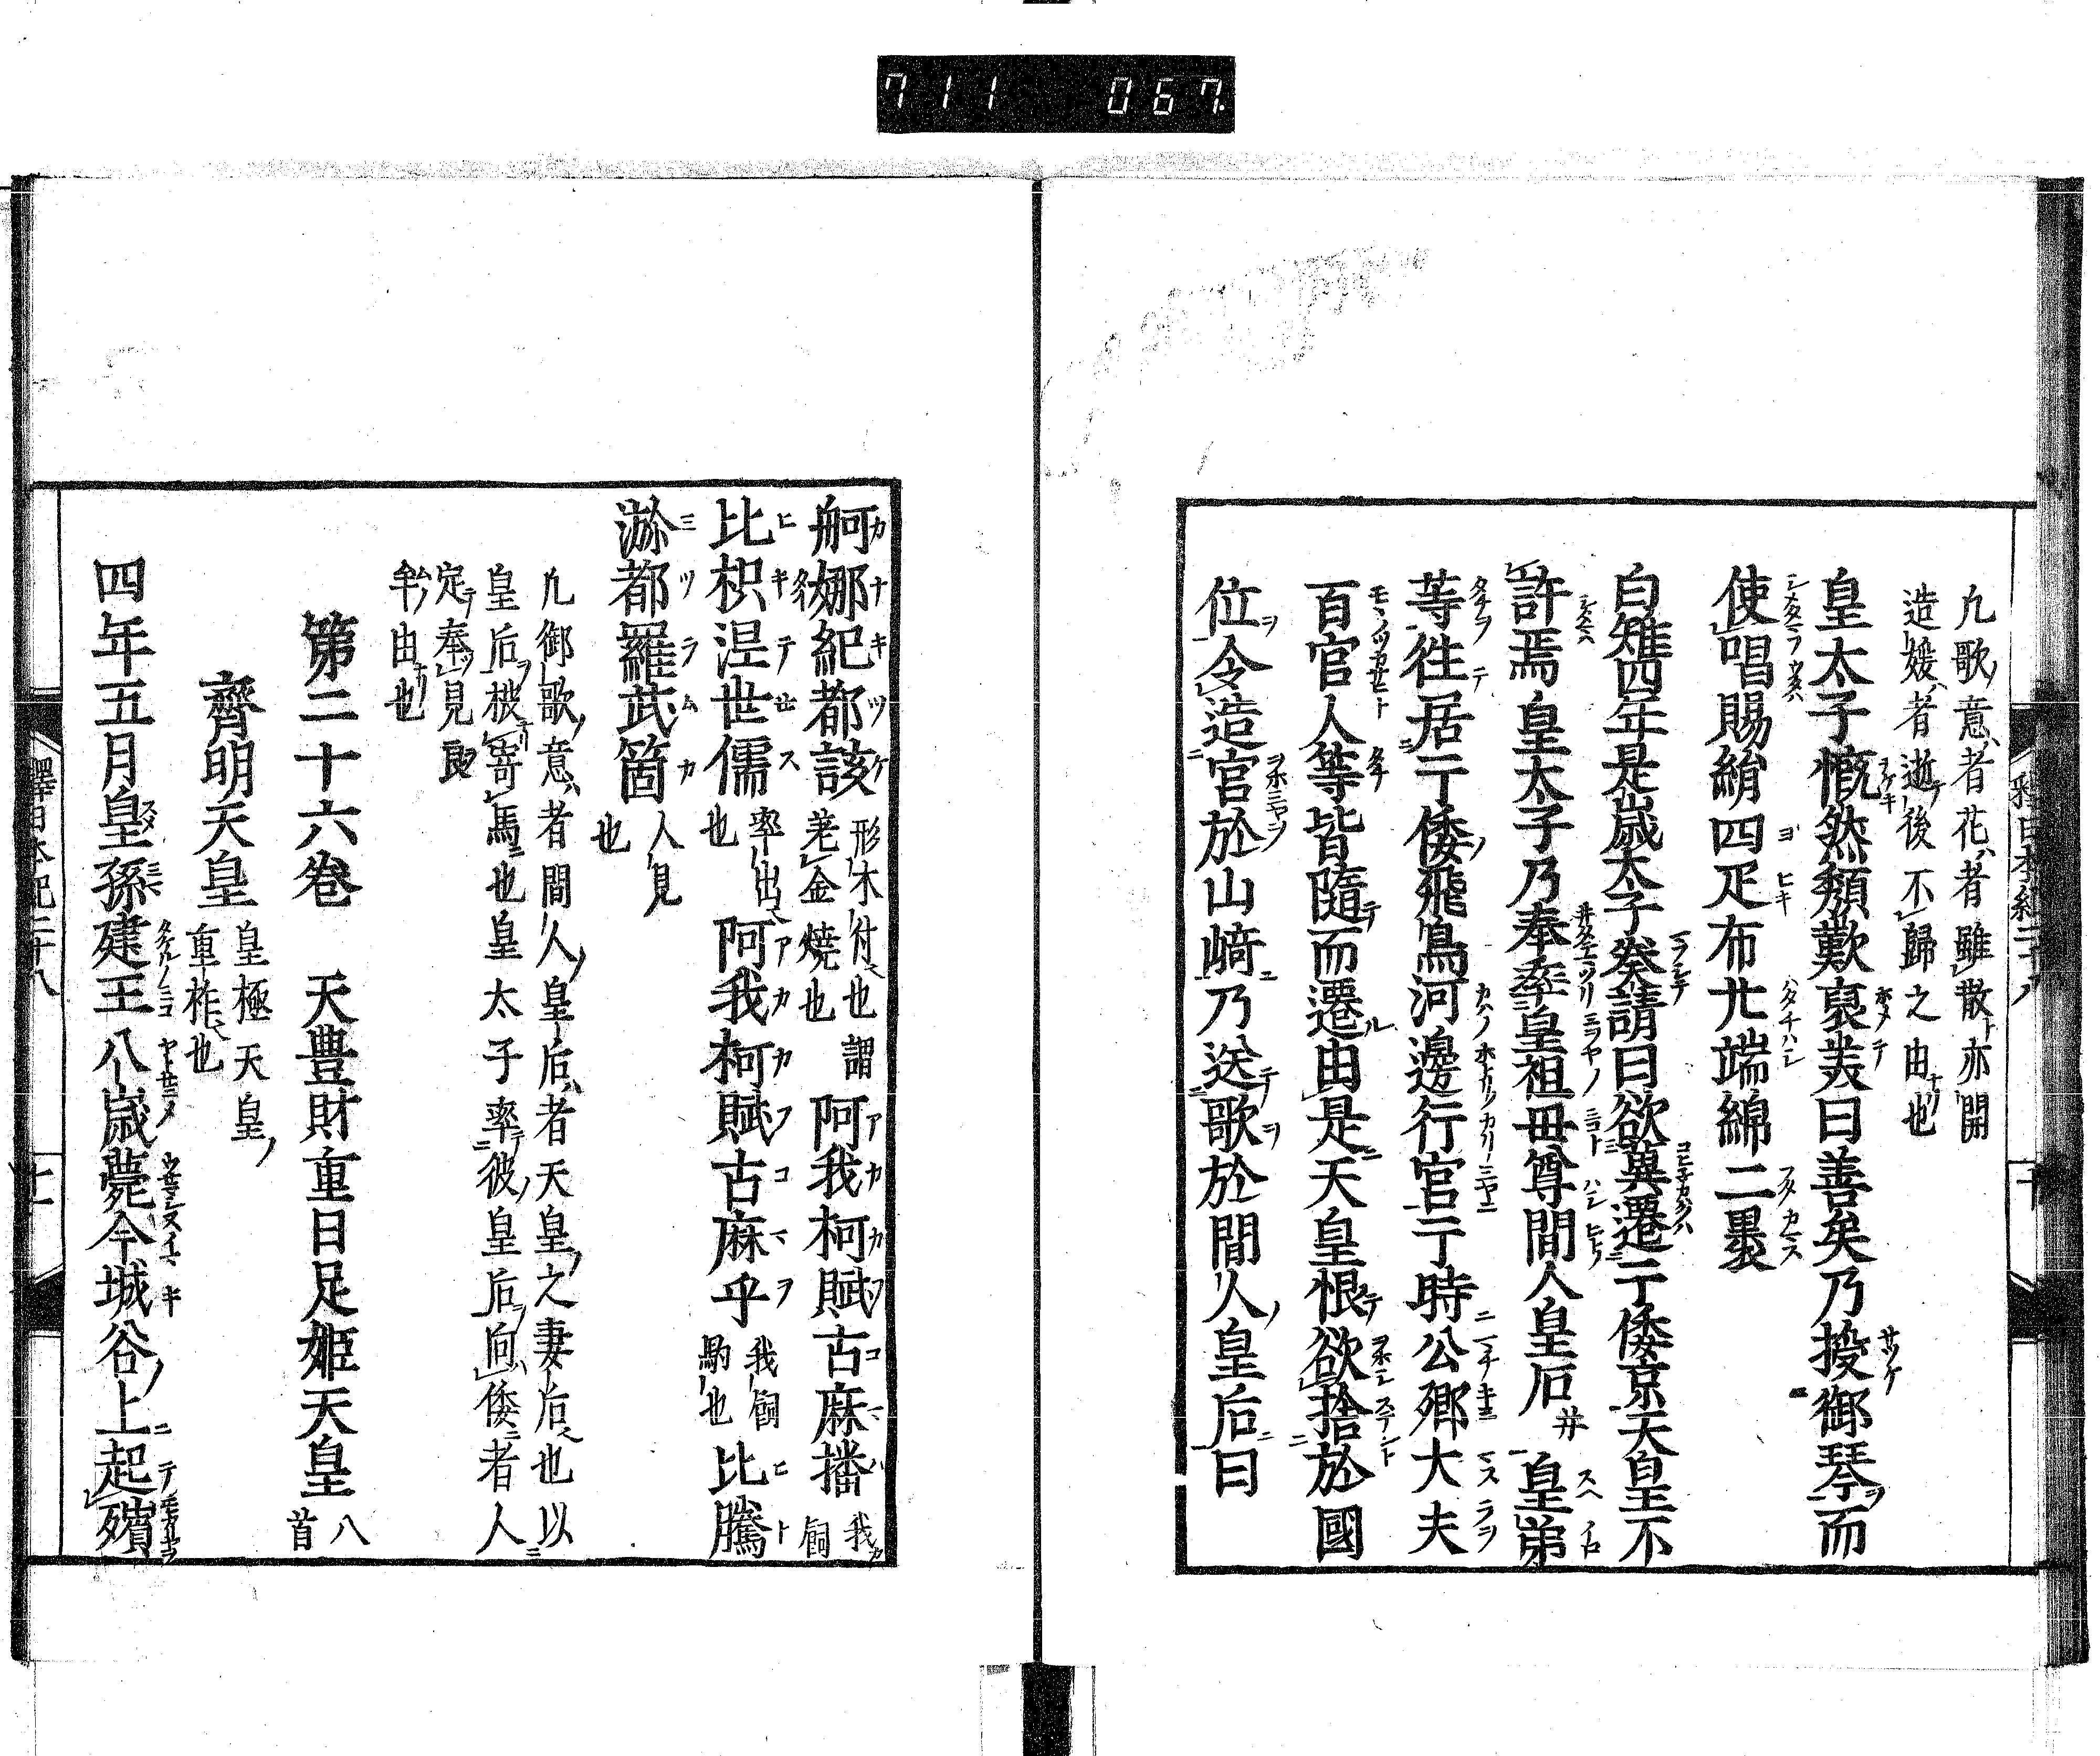 711 067.
凢歌ノ意ハ者花ハ者雖散ト亦開
造媛ハ者逝テ後不歸之由ナリ也
皇太子慨然頽歎褒美曰善矣乃授御琴而
使唱賜絹四疋布廿端綿二褁
白雉四年是歳太子奏請曰欲冀遷于倭京天皇不
許焉皇太子乃奉率皇祖母尊間人皇后并皇弟
等往居于倭飛鳥河邊行宮于時公卿大夫
百官人等皆隨而遷由是天皇恨欲捨於國
位令造宮於山﨑乃送歌於間人皇后曰
舸娜紀都該 形木付也 謂 阿我柯賦古麻播 我飼
比枳涅世儒 率出也 阿我柯賦古麻乎 我飼駒也 比騰
瀰都羅武箇 人見也
凢御歌ノ意ハ者間人ノ皇后ハ者天皇ノ之妻后也以
皇后寄馬也皇太子率彼皇后向倭者人
定奉見
牟由也
第二十六卷 天豊財重日足姫天皇 八首
齊明天皇 皇極天皇ノ重祚也
四年五月皇孫建王八歳薨今城谷上起殯
釋日本紀二十八